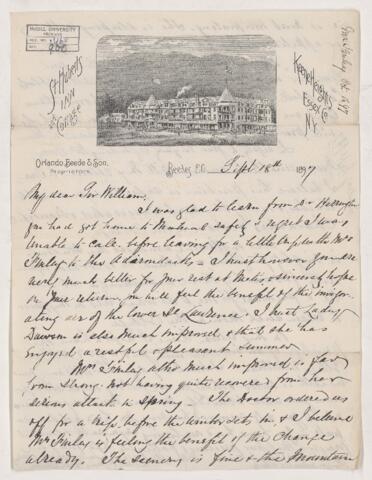 McGILL UNIVERSITY
ARCHIVES
ACC. NO.
REF.
St Huberts
INN
& Cottages
Keene Heights
Essex Co.
N.Y.
Orlando Beede & Son,
Proprietors.
Beedes, P.O. Sept 18th 1897
My dear Sir William,
I was glad to learn from Dr Harrington
you had got home to Montreal safely & regret I was
unable to call before leaving for a little trip with Mrs
Finlay to the Adirondacks - I trust however you are
very much better for your rest at Metis, & sincerely hope
on your return you will feel the benefit of the invigor-
ating air of the lower St Lawrence. I trust Lady
Dawson is also much improved & that she has
enjoyed a restful & pleasant summer
Mrs Finlay altho much improved is far
from strong. not having quite recovered from her
serious attack in spring - The Doctor ordered us
off for a trip before the winter sets in, & I believe
Mrs Finlay is feeling the benefit of the change
already. The scenery is fine & the Mountain